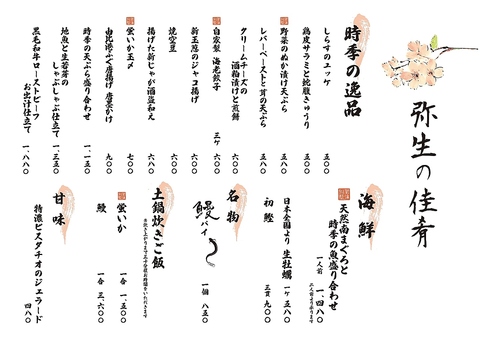 弥生の佳肴
時季の逸品
しらすのユッケ 五〇〇
鶏皮サラミと蛇腹きゅうり 五八〇
野菜のぬか漬け天ぷら 五五〇
レバーペーストと茸の天ぷら 五八〇
クリームチーズの
酒粕漬けと煎餅 六八〇
自家製 海老餃子 三ケ 六〇〇
新玉葱のジャコ揚げ 六〇〇
焼空豆 六〇〇
揚げた新じゃが酒盗和え 六八〇
蛍いか玉〆 七〇〇
由比港ふぐ唐揚げ 唐墨かけ 九〇〇
時季の天ぷら盛り合わせ 一、一五〇
地魚と生若芽の
しゃぶしゃぶ仕立て 一、三五〇
黒毛和牛ローストビーフ
お出汁仕立て 一、八八〇
海鮮
天然南まぐろと
時季の魚盛り合わせ
一人前 一、四八〇
二人前より承ります
日本全国より 生牡蠣 一ケ 五八〇
初鰹 三貫 九〇〇
名物
鰻パイ 一個 八五〇
土鍋炊きご飯
蛍いか 一合 一、五〇〇
鰻 一合 三、六〇〇
甘味
特濃ピスタチオのジェラード 四八〇